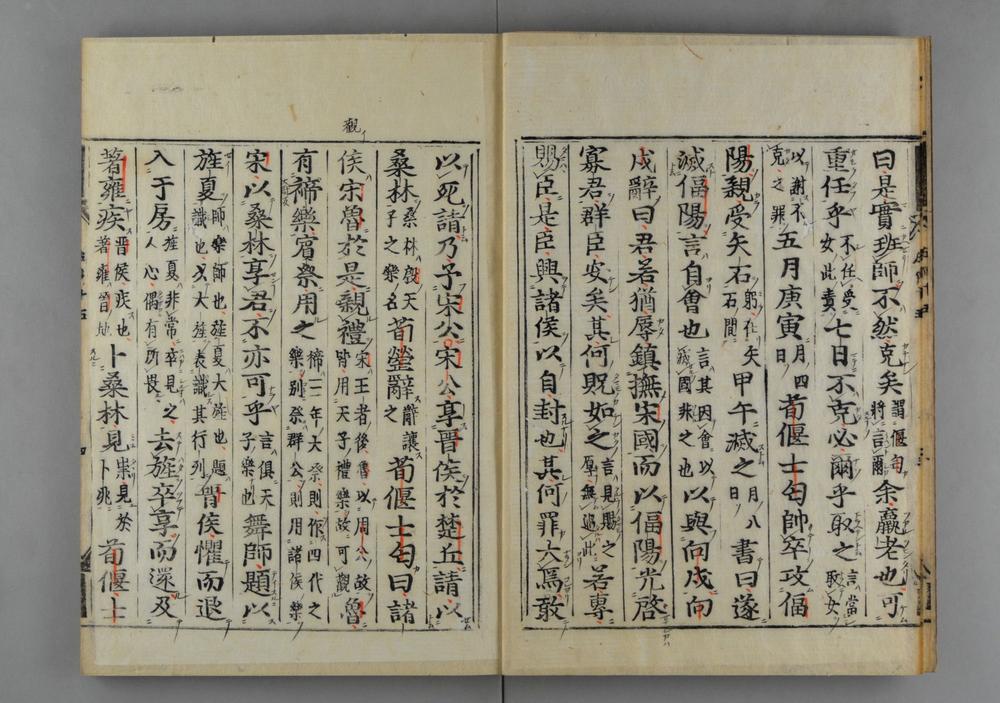 曰是實班師不然克矣謂偃匄將言爾余羸老也可
重任乎不任受女此責七日不克必爾乎取之言當取女
以謝不克之罪五月庚寅月四日荀偃士匄帥卒攻偪
陽親受矢石躬在矢石間甲午滅之月八日書曰遂
滅偪陽言自會也言其因會以滅國非之也以與向戌向
戌辭曰君若猶辱鎮撫宋國而以偪陽光啓
寡君群臣安矣其何貺如之言見賜之厚無過此若專
賜臣是臣興諸侯以自封也其何罪大焉敢
觀
以死請乃予宋公宋公享晉侯於楚丘請以
桑林桑林殷天子之樂名荀罃辭辭讓之荀偃士匄曰諸
侯宋魯於是親禮宋王者後魯以周公故皆用天子禮樂故可觀魯
有禘樂賓祭用之禘三年大祭則作四代之樂別祭群公則用諸侯樂
宋以桑林享君不亦可乎言俱天子樂也舞師題以
旌夏師樂師也旌夏大旌也題識也以大旌表識其行列晉侯懼而退
入于房旌夏非常卒見之人心偶有所畏去旌卒享而還及
著雍疾晉侯疾也著雍晉地卜桑林見祟見於卜兆荀偃士